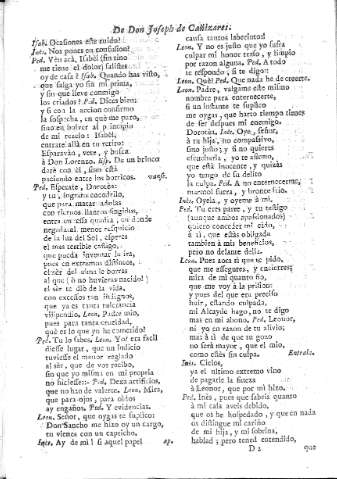 De Don Joseph de Cañizares.
Isab. Ocasiones este ruido?
Inès. Nos ponen en confusion?
Ped. Vèn acà, Isabèl (sin vino
me tiene el dolor) saliste
oy de casa? Isab. Quando has visto,
que salga yo sin mi prima,
y sin que lleve conmigo
los criados? Ped. Dices bien;
y si con la accion confirmo
la sospecha, en què me paro,
sino en bolver al principio
de mi recato? Isabèl,
entrate allà en tu retiro?
Esparavàn, vete, y busca
à Don Lorenzo. Esp. De un brinco
darè con èl, si no està
paciendo entre los borricos. vanse.
Ped. Esperate, Dorotèa:
y tu, ingrata cocodrilo,
que para matar
con tiernos llantos fingidos,
entra en essa quadra, en donde
negada al menor resquicio
de la luz del Sol, esperes
el mas terrible castigo,
que pueda inventar la ira,
pues en estremos distintos,
el ser del alma le borras
al que (ò no huvieras nacido!)
el ser te diò de la vida,
con excessos tan indignos,
que ya es tanta tolerancia
vilipendio. Leon. Padre mio,
pues para tanta crueldad,
què es lo que yo he cometido?
Ped. Tu lo sabes. Leon. Yo? era facil
diesse lugar, que un indicio
tuviesse el menor reglado
al ser, que de vos recibo,
sin que yo misma en mi propria
no hiciesse- Ped. Dexa artificios,
que no han de valerte. Leon. Mira,
que para ojos, para oidos
ay engaños. Ped. Y evidencias.
Leon. Señor, que ingrata te suplico:
Don Sancho me hizo oy un cargo,
tu vienes con un capricho,
Inès. Ay de mi! si aquel papel ap.
causa tantos laberintos!
Leon. Y no es justo que yo sufra
culpar mi honor terso, y limpio
por razon alguna. Ped. A todo
te respondo, si te digo:
Leon. Què? Ped. Que nada he de creerte.
Leon. Padre, valgame este mismo
nombre para enternecerte,
si un infante te suplico
me oygas, que harto tiempo tienes
de ser despues mi enemigo.
Dorotèa, Inès. Oye, señor,
à tu hija, no compassivo,
sino justo; y si no quieres
escucharla, yo te afirmo,
que està inocente, y quizàs
yo tengo de su delito
la culpa. Ped. A no enternecerme,
marmol fuera, y bronce frio.
Inès. Oyela, y oyeme à mi.
Ped. Tu eres parte, y tu testigo
(aunque ambos apassionados)
quiero conceder mi oido,
à ti, que estàs obligada
tambien à mis beneficios,
pero no delante della.
Leon. Pues toca si que te pido,
que me assegures, y encierres;
mira de mi quanto fio,
que me voy à la prision:
y pues del que era preciso
huir, estando culpada,
mi Alcayde hago, no te digo
mas en mi abono. Ped. Leonor,
ni yo en razon de tu alivio;
mas à ti de que te gozo
no serà mayor, que el mio,
como estès sin culpa. Entrase.
Inès. Cielos,
ya el ultimo extremo vino
de pagarle la fineza
à Leonor, que por mi hizo.
Ped. Inès, pues que sabeis quanto
à mi casa aveis debido,
que os he hospedado, y que en nada
os distingue mi cariño
de mi hija, y mi sobrina,
hablad; pero tened entendido,
D 2 que